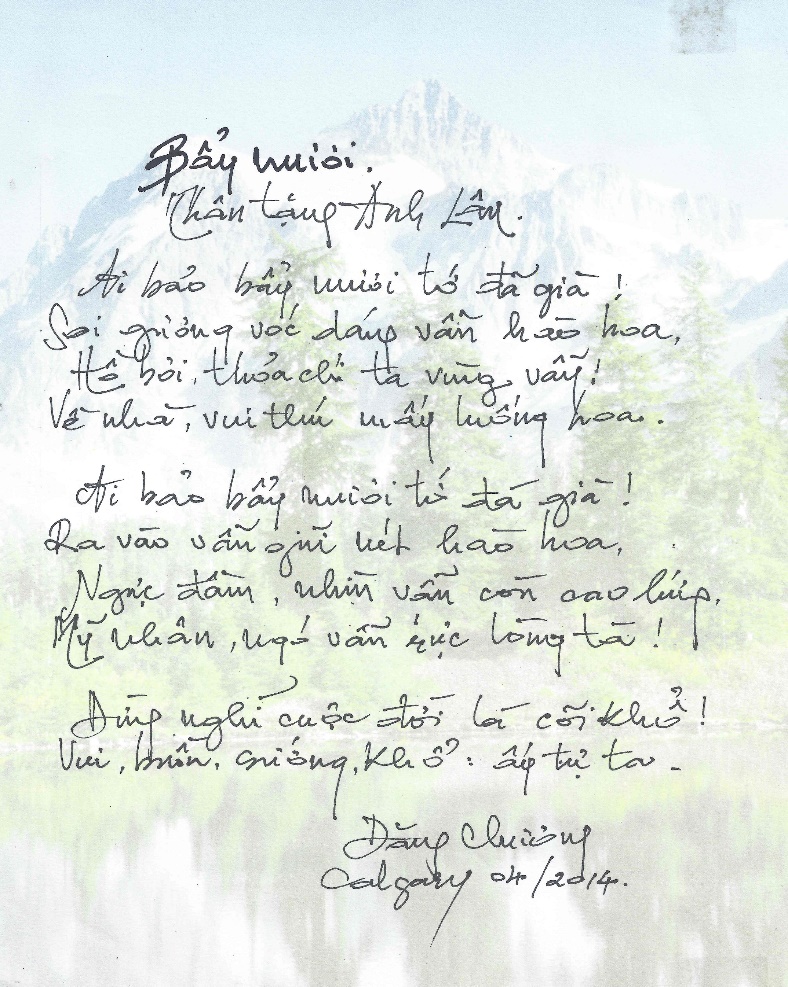 Bẩy mươi.
Thân tặng Anh Lân.
Ai bảo bẩy mươi tớ đã già!
Soi gương vóc dáng vẫn hào hoa,
Hồ bơi, thỏa chí ta vùng vẫy!
Về nhà, vui thú mấy luống hoa.
Ai bảo bẩy mươi tớ đã già!
Ra vào vẫn giữ nét hào hoa,
Ngực đầm, nhìn vẫn còn cao lắm,
Mỹ nhân, ngó vẫn rực lòng ta!
Đừng nghĩ cuộc đời là cõi khổ!
Vui, buồn, sướng, khổ: ấy tự ta.
Đăng Chương
Calgary 04/2014.